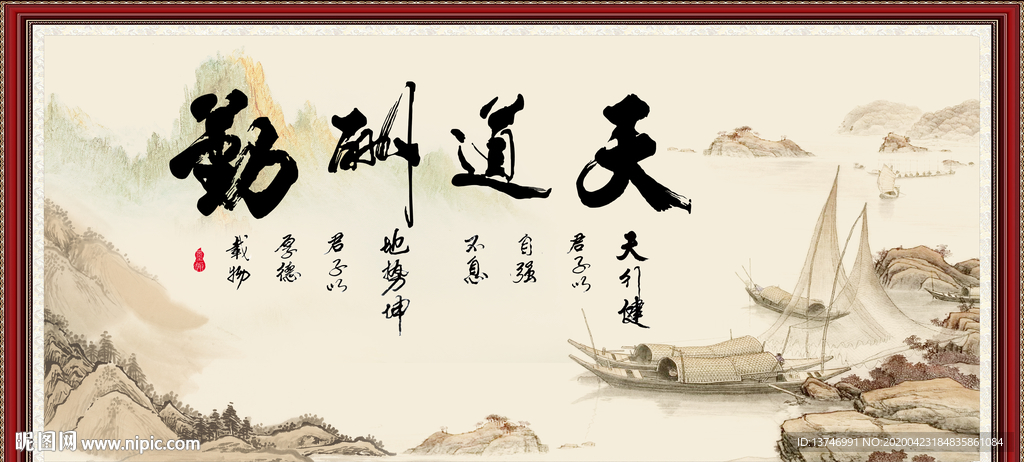 天道酬勤
天行健
君子以
自强
不息
地势坤
君子以
厚德
载物
昵图网 www.nipic.com
ID:13746991 NO:20200423184835861084